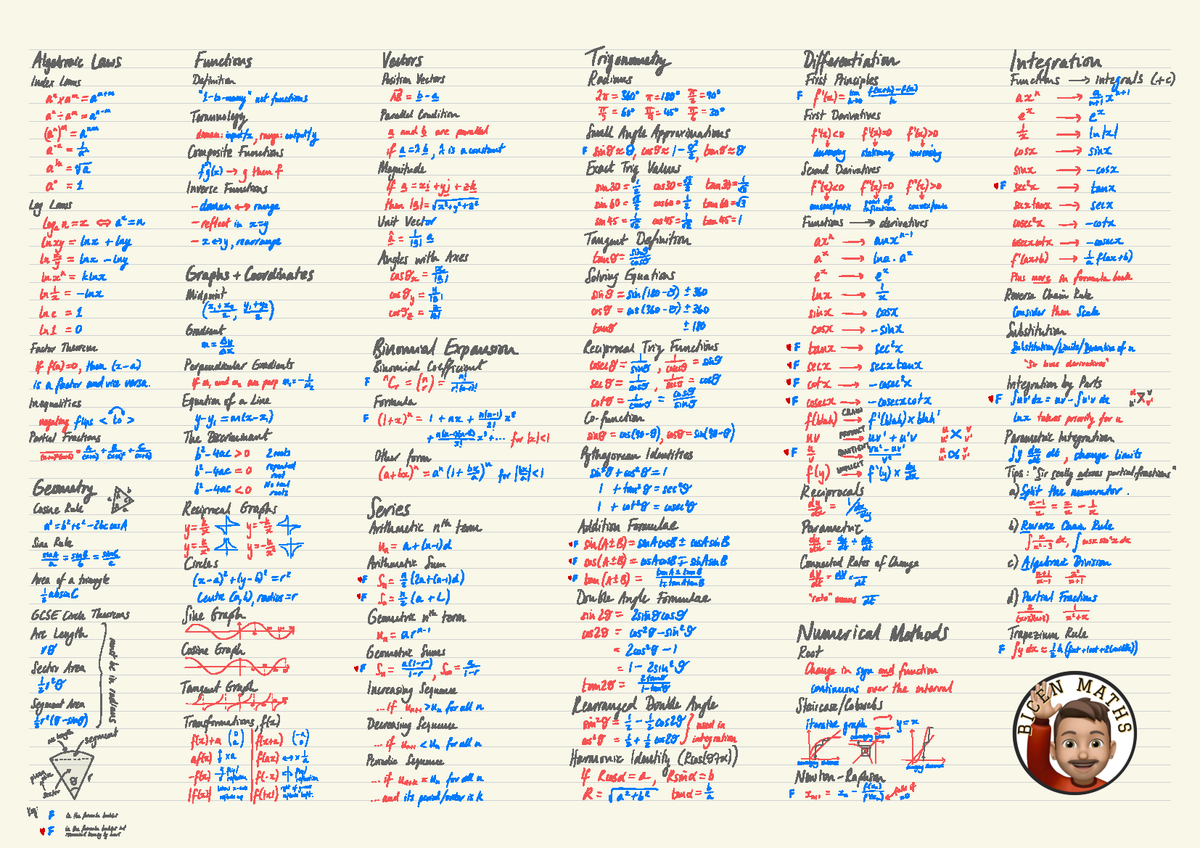 Algebraic Laws
Index Laws
aⁿ × aᵐ = aⁿ⁺ᵐ
aⁿ ÷ aᵐ = aⁿ⁻ᵐ
(aⁿ)ᵐ = aⁿᵐ
a⁰ = 1
Log Laws
logₐ n = x ⇔ aˣ = n
lnxy = lnx + lny
ln x/y = lnx - lny
lnxᵏ = klnx
ln 1/x = -lnx
lne = 1
ln1 = 0
Factor Theorem
If f(a)=0, then (x-a)
is a factor and vice versa.
Inequalities
negating flips < to >
Partial Fractions
Geometry
Cosine Rule
a² = b² + c² - 2bc cosA
Sine Rule
sinA/a = sinB/b = sinC/c
Area of a triangle
½absinC
GCSE Circle Theorems
Arc Length
rθ
Sector Area
½r²θ
Segment Area
½r²(θ - sinθ)
must be in radians
arc length
segment
sector
r
θ
Key:
F in the formula booklet
♥F in the formula booklet but
Functions
Definition
"1-to-many" not functions
Terminology
domain: input/x, range: output/y
Composite Functions
fg(x) → g then f
Inverse Functions
- domain ↔ range
- reflect in x=y
- x↔y, rearrange
Graphs + Coordinates
Midpoint
(x₁+x₂/2, y₁+y₂/2)
Gradient
m = Δy/Δx
Perpendicular Gradients
Equation of a Line
y-y₁ = m(x-x₁)
The Discriminant
b²-4ac > 0 2 roots
b²-4ac = 0 repeated root
b²-4ac < 0 No real roots
Reciprocal Graphs
Circles
(x-a)² + (y-b)² = r²
Centre (a,b), radius = r
Sine Graph
Cosine Graph
Tangent Graph
Transformations, f(x)
f(x)+a
f(x+a)
af(x)
f(ax)
-f(x)
f(-x)
|f(x)|
f(|x|)
Vectors
Position Vectors
AB = b - a
Parallel Condition
a and b are parallel
if a = λb, λ is a constant
Magnitude
if a = xi + yj + zk
then |a| = √x²+y²+z²
Unit Vector
â = 1/|a| a
Angles with Axes
cosθₓ = x/|a|
cosθᵧ = y/|a|
cosθ_z = z/|a|
Binomial Expansion
Binomial Coefficient
F ⁿCᵣ = (n r) = n!/r!(n-r)!
Formula
F (1+x)ⁿ = 1 + nx + n(n-1)/2! x²
+ n(n-1)(n-2)/3! x³ + ... for |x|<1
Other form
(a+bx)ⁿ = aⁿ(1 + b/a x)ⁿ for |bx/a|<1
Series
Arithmetic nᵗʰ term
uₙ = a+(n-1)d
Arithmetic Sum
♥F Sₙ = n/2 (2a+(n-1)d)
♥F Sₙ = n/2 (a + L)
Geometric nᵗʰ term
uₙ = arⁿ⁻¹
Geometric Sums
♥F Sₙ = a(1-rⁿ)/1-r, S∞ = a/1-r
Increasing Sequence
... if uₙ₊₁ > uₙ for all n
Decreasing Sequence
... if uₙ₊₁ < uₙ for all n
Periodic Sequence
... if uₙ₊ₖ = uₙ for all n
... and its period/order is k
Trigonometry
Radians
2π = 360° π = 180° π/2 = 90°
π/3 = 60° π/4 = 45° π/6 = 30°
Small Angle Approximations
F sinθ ≈ θ, cosθ ≈ 1 - θ²/2, tanθ ≈ θ
Exact Trig Values
sin30 = 1/2 cos30 = √3/2 tan30 = 1/√3
sin60 = √3/2 cos60 = 1/2 tan60 = √3
sin45 = 1/√2 cos45 = 1/√2 tan45 = 1
Tangent Definition
tanθ = sinθ/cosθ
Solving Equations
sinθ = sin(180-θ) ± 360
cosθ = cos(360-θ) ± 360
tanθ ± 180
Reciprocal Trig Functions
cosecθ = 1/sinθ, 1/cosecθ = sinθ
secθ = 1/cosθ, 1/secθ = cosθ
cotθ = 1/tanθ = cosθ/sinθ
Co-function
sinθ = cos(90-θ), cosθ = sin(90-θ)
Pythagorean Identities
sin²θ + cos²θ = 1
1 + tan²θ = sec²θ
1 + cot²θ = cosec²θ
Addition Formulae
♥F sin(A±B) = sinAcosB ± cosAsinB
♥F cos(A±B) = cosAcosB ∓ sinAsinB
♥F tan(A±B) = tanA ± tanB/1 ∓ tanAtanB
Double Angle Formulae
sin2θ = 2sinθcosθ
cos2θ = cos²θ - sin²θ
= 2cos²θ - 1
= 1 - 2sin²θ
tan2θ = 2tanθ/1-tan²θ
Rearranged Double Angle
sin²θ = ½ - ½cos2θ
cos²θ = ½ + ½cos2θ
used in integration
Harmonic Identity (Rcos(θ∓α))
if Rcosα = a, Rsinα = b
R = √a²+b² tanα = b/a
Differentiation
First Principles
F f'(x) = lim h→0 f(x+h)-f(x)/h
First Derivatives
f'(x)<0 f'(x)=0 f'(x)>0
decreasing stationary increasing
Second Derivatives
f''(x)<0 f''(x)=0 f''(x)>0
Functions → derivatives
axⁿ → anxⁿ⁻¹
aˣ → lna·aˣ
eˣ → eˣ
lnx → 1/x
sinx → cosx
cosx → -sinx
♥F tanx → sec²x
♥F secx → secxtanx
♥F cotx → -cosec²x
♥F cosecx → -cosecxcotx
f(blah) CHAIN → f'(blah) × blah'
uv PRODUCT → uv' + u'v
♥F u/v QUOTIENT → vu'-uv'/v²
f(y) IMPLICIT → f'(y) × dy/dx
Reciprocals
Parametric
Connected Rates of Change
"rate" means
Numerical Methods
Root
Change in sign and function
continuous over the interval
Staircase/Cobwebs
iterative graph → y=x
Newton-Raphson
F xₙ₊₁ = xₙ - f(xₙ)/f'(xₙ)
Integration
Functions → integrals (+c)
axⁿ → a/n+1 xⁿ⁺¹
eˣ → eˣ
1/x → ln|x|
cosx → sinx
sinx → -cosx
♥F sec²x → tanx
secxtanx → secx
cosec²x → -cotx
cosecxcotx → -cosecx
f'(ax+b) → 1/a f(ax+b)
Plus more in formula book
Reverse Chain Rule
Consider then Scale
Substitution
"Sir loves derivatives"
Integration by Parts
♥F ∫uv' dx = uv - ∫u'v dx
lnx takes priority for u
Parametric Integration
∫y dx/dt dt, change limits
Tips: "Sir really adores partial fractions"
a) Split the numerator.
x-1/x = x/x - 1/x
b) Reverse Chain Rule
c) Algebraic Division
d) Partial Fractions
Trapezium Rule
F ∫y dx ≈ ½h(first+last+2(middle))
BICEN MATHS